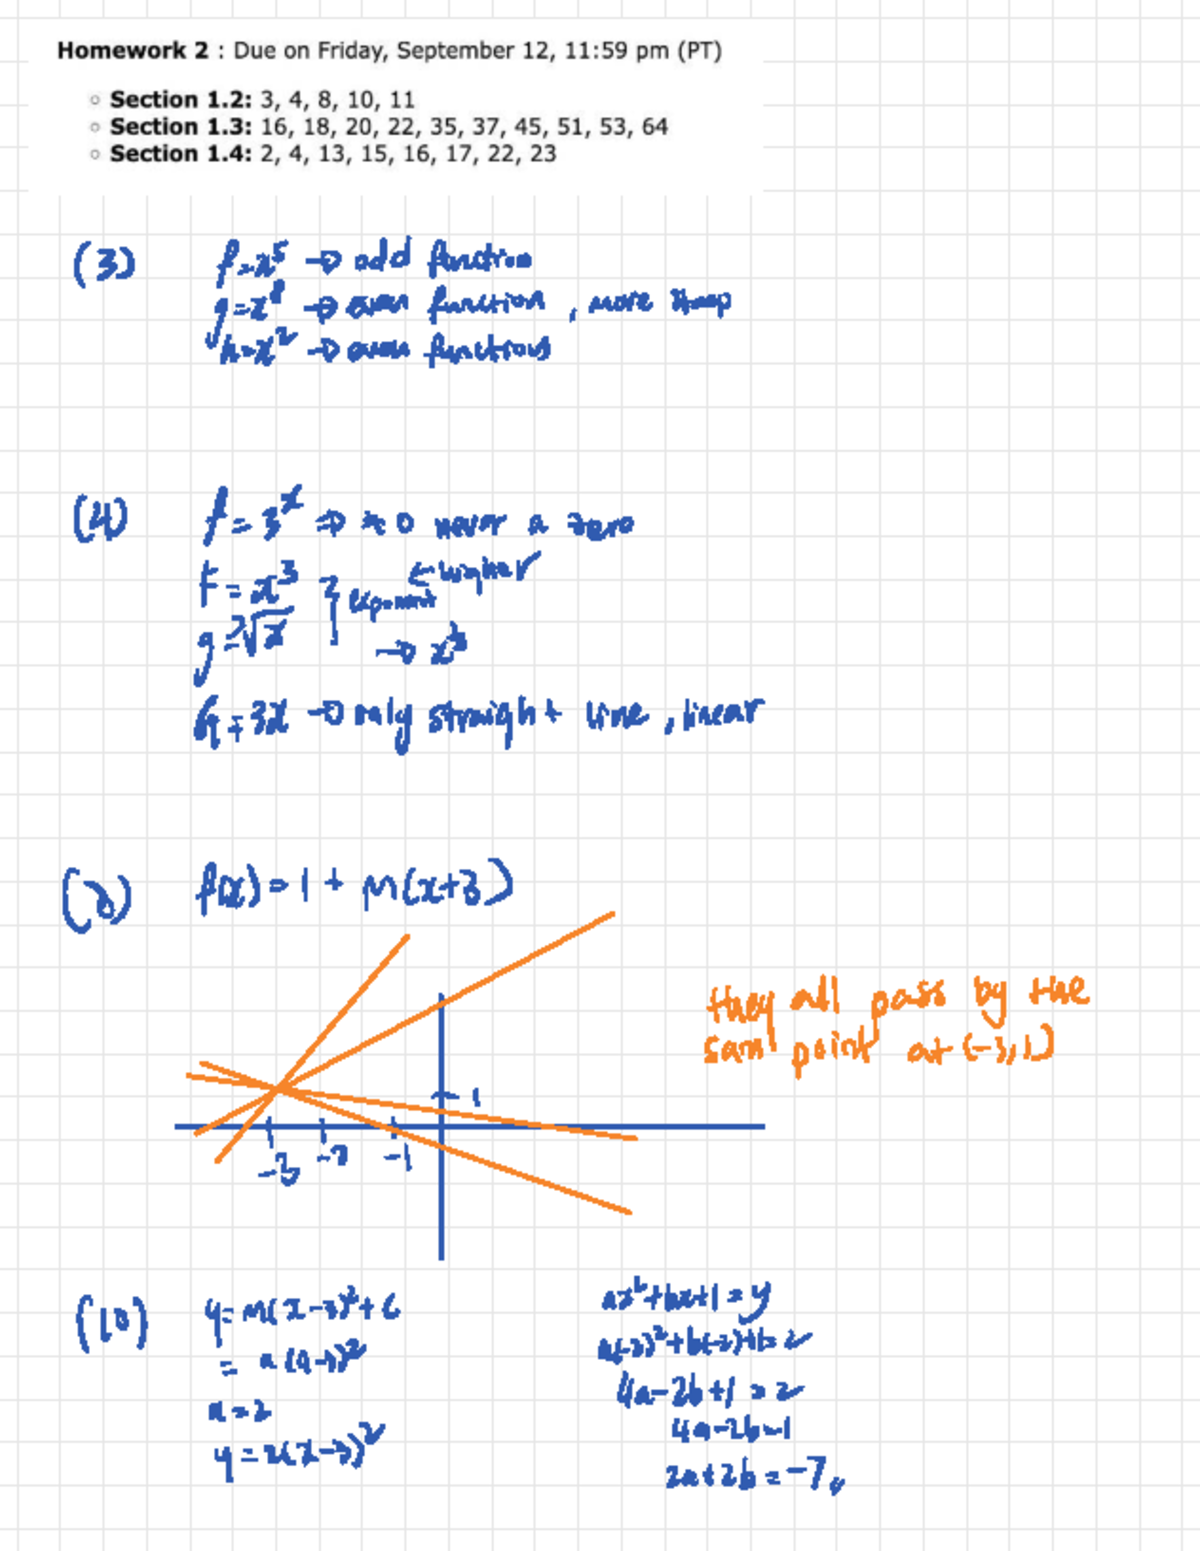 Homework 2 : Due on Friday, September 12, 11:59 pm (PT)
Section 1.2: 3, 4, 8, 10, 11
Section 1.3: 16, 18, 20, 22, 35, 37, 45, 51, 53, 64
Section 1.4: 2, 4, 13, 15, 16, 17, 22, 23
(3) f=x⁵ → odd function
g=x⁸ → even function, more
h=x² → even functions
(4) f=3ˣ → never a zero
F=x³ exponent ← higher
g=³√x → x^⅓
G=3x → only straight line, linear
(8) f(x)=1+m(x+3)
they all pass by the
same point at (-3,1)
1
-3 -2 -1
(10) y=m(x-3)²+c
= a(4-3)²
a=2
y=2(x-3)²
ax²+bx+1=y
a(-2)²+b(-2)+1=2
4a-2b+1=2
4a-2b=1
2a+2b=-7